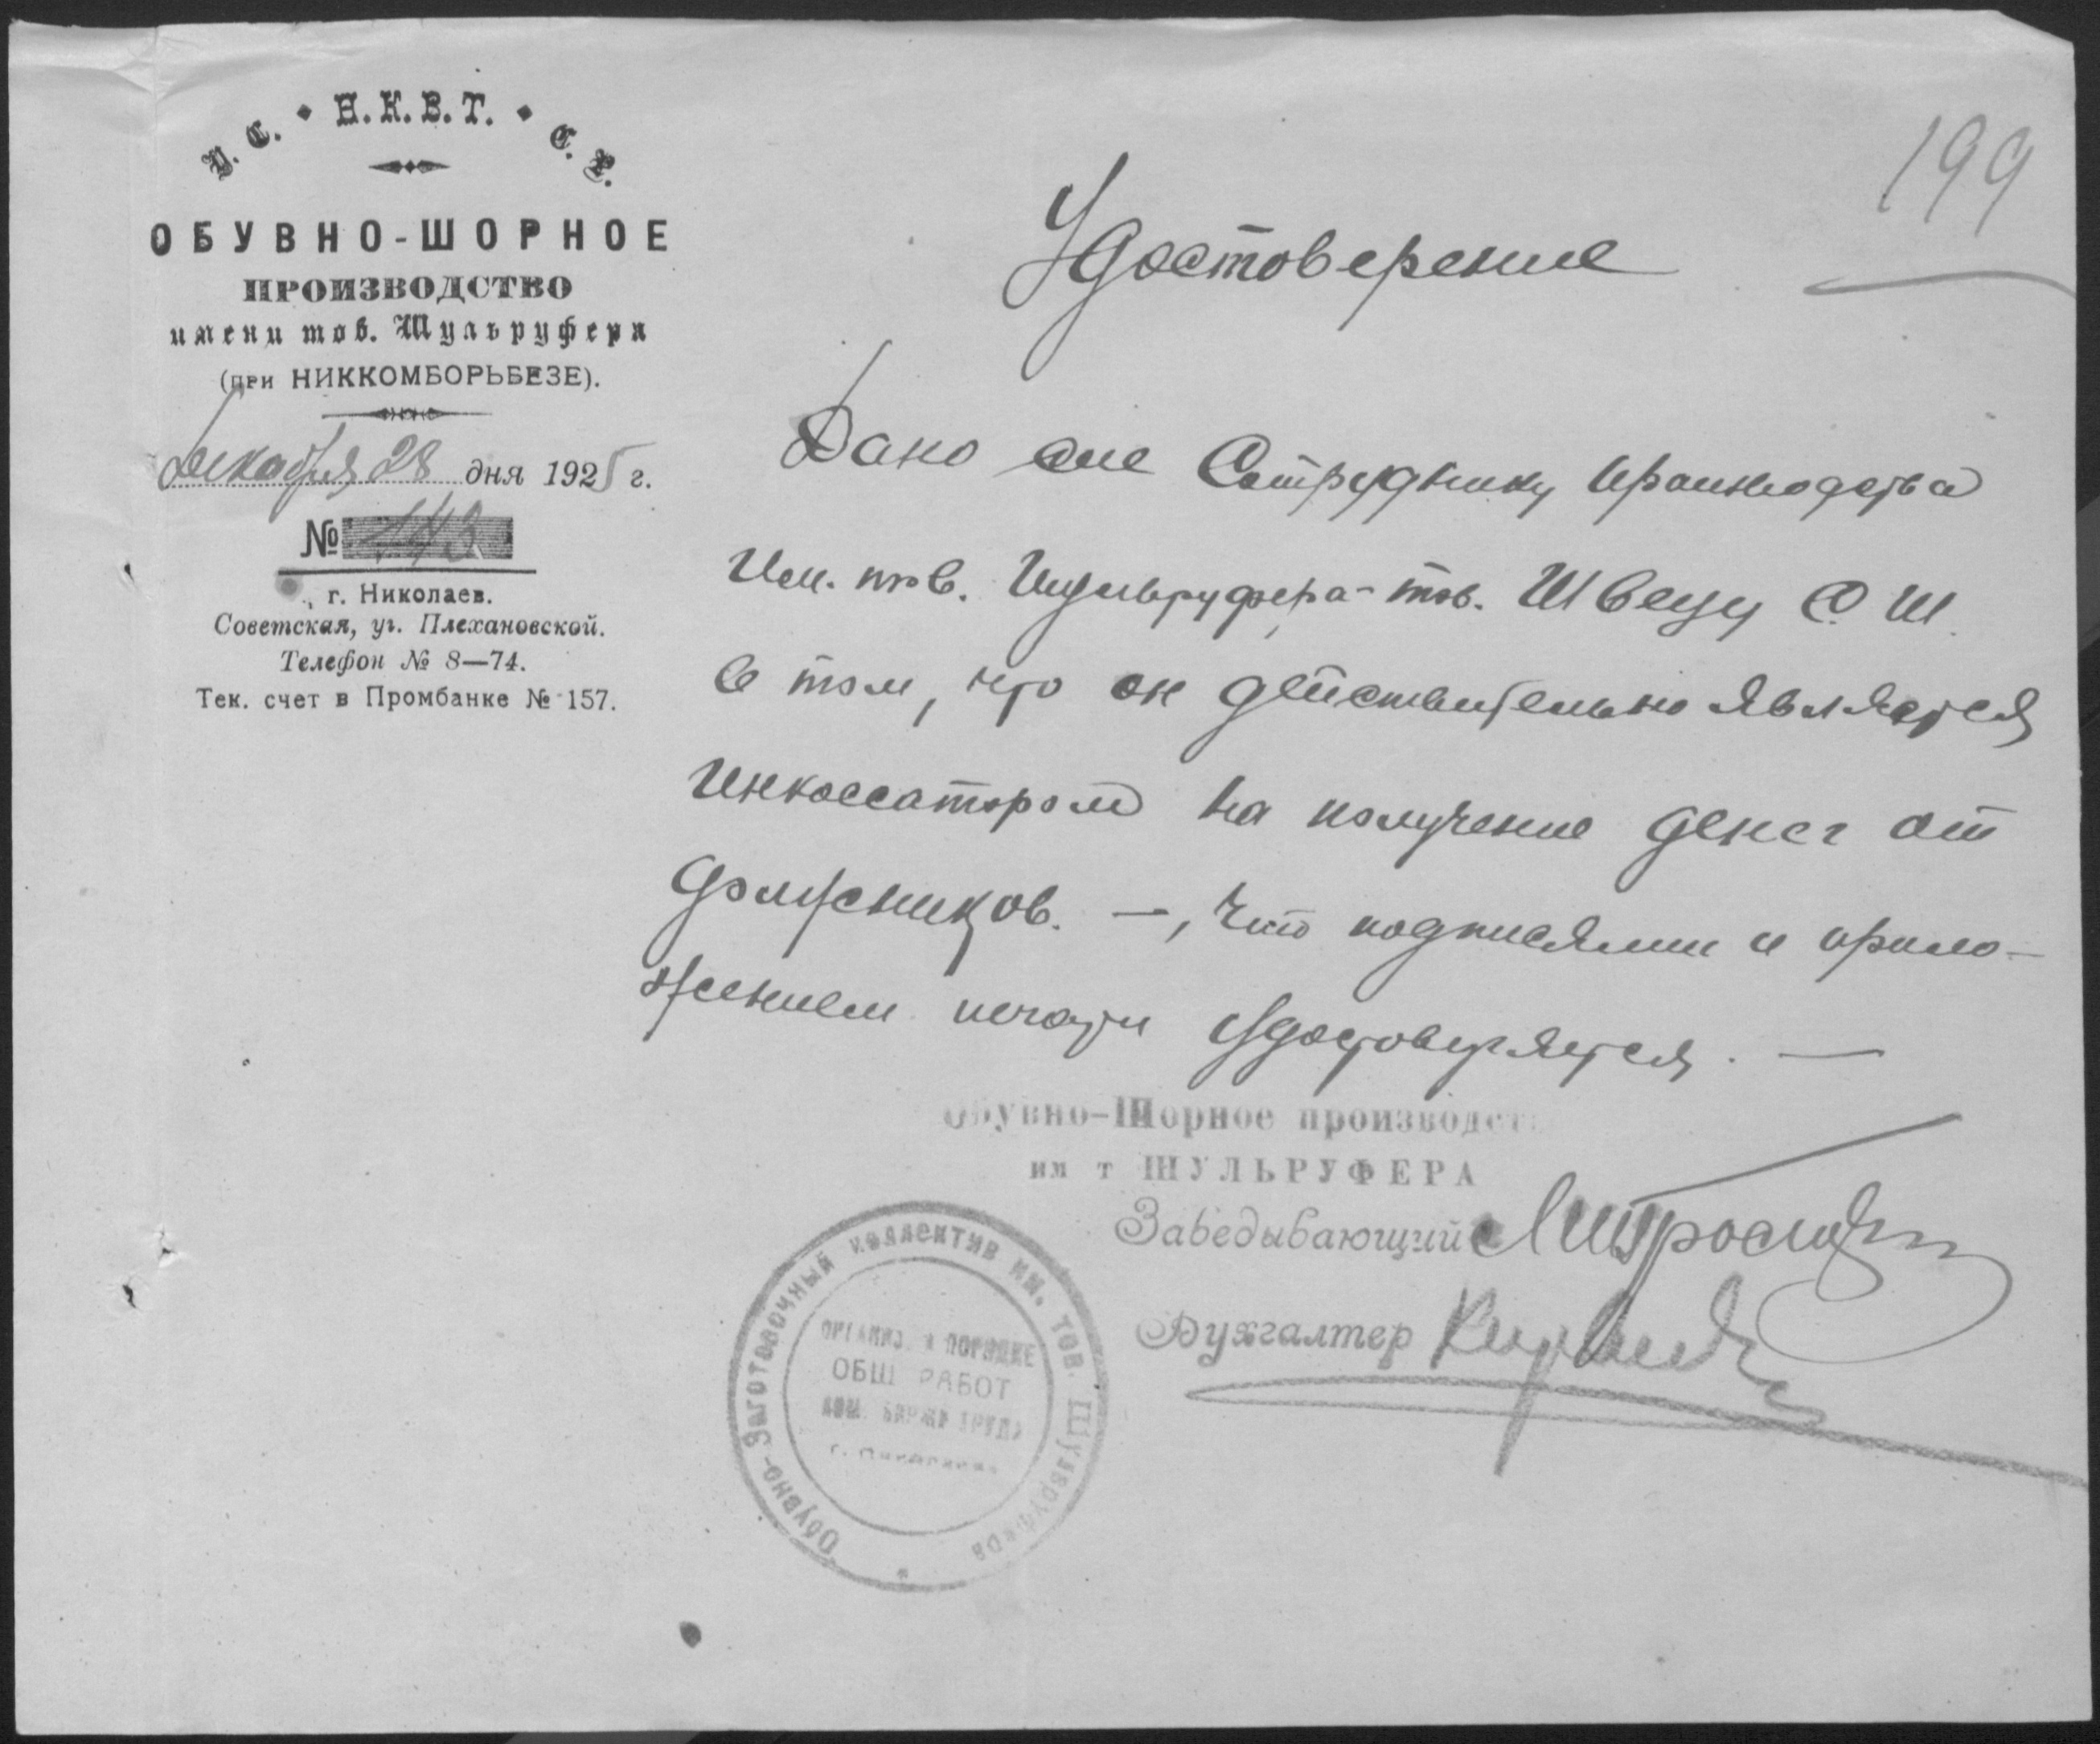 У. С. • Н.К.В.Т. • С. Р.
ОБУВНО-ШОРНОЕ
ПРОИЗВОДСТВО
имени тов. Шульруфера
(при НИККОМБОРЬБЕЗЕ).
Декабря 28 дня 1925 г.
№ 143
г. Николаев.
Советская, уг. Плехановской.
Телефон № 8—74.
Тек. счет в Промбанке № 157.
199
Удостоверение
Дано сие Сотруднику производства
Им. тов. Шульруфера - тов. Швецу С. Ш.
в том, что он действительно является
Инкассатором на получение денег от
должников. —, Что подписями и прило-
жением печати удостоверяется. —
Обувно-Шорное производст
им т ШУЛЬРУФЕРА
Заведывающий
Бухгалтер
Обувно-Заготовочный коллектив им. тов. Шульруфера
ОРГАНИЗ. в ПОРЯДКЕ
ОБЩ РАБОТ
КОМ. БИРЖИ ТРУДА
г. Николаева